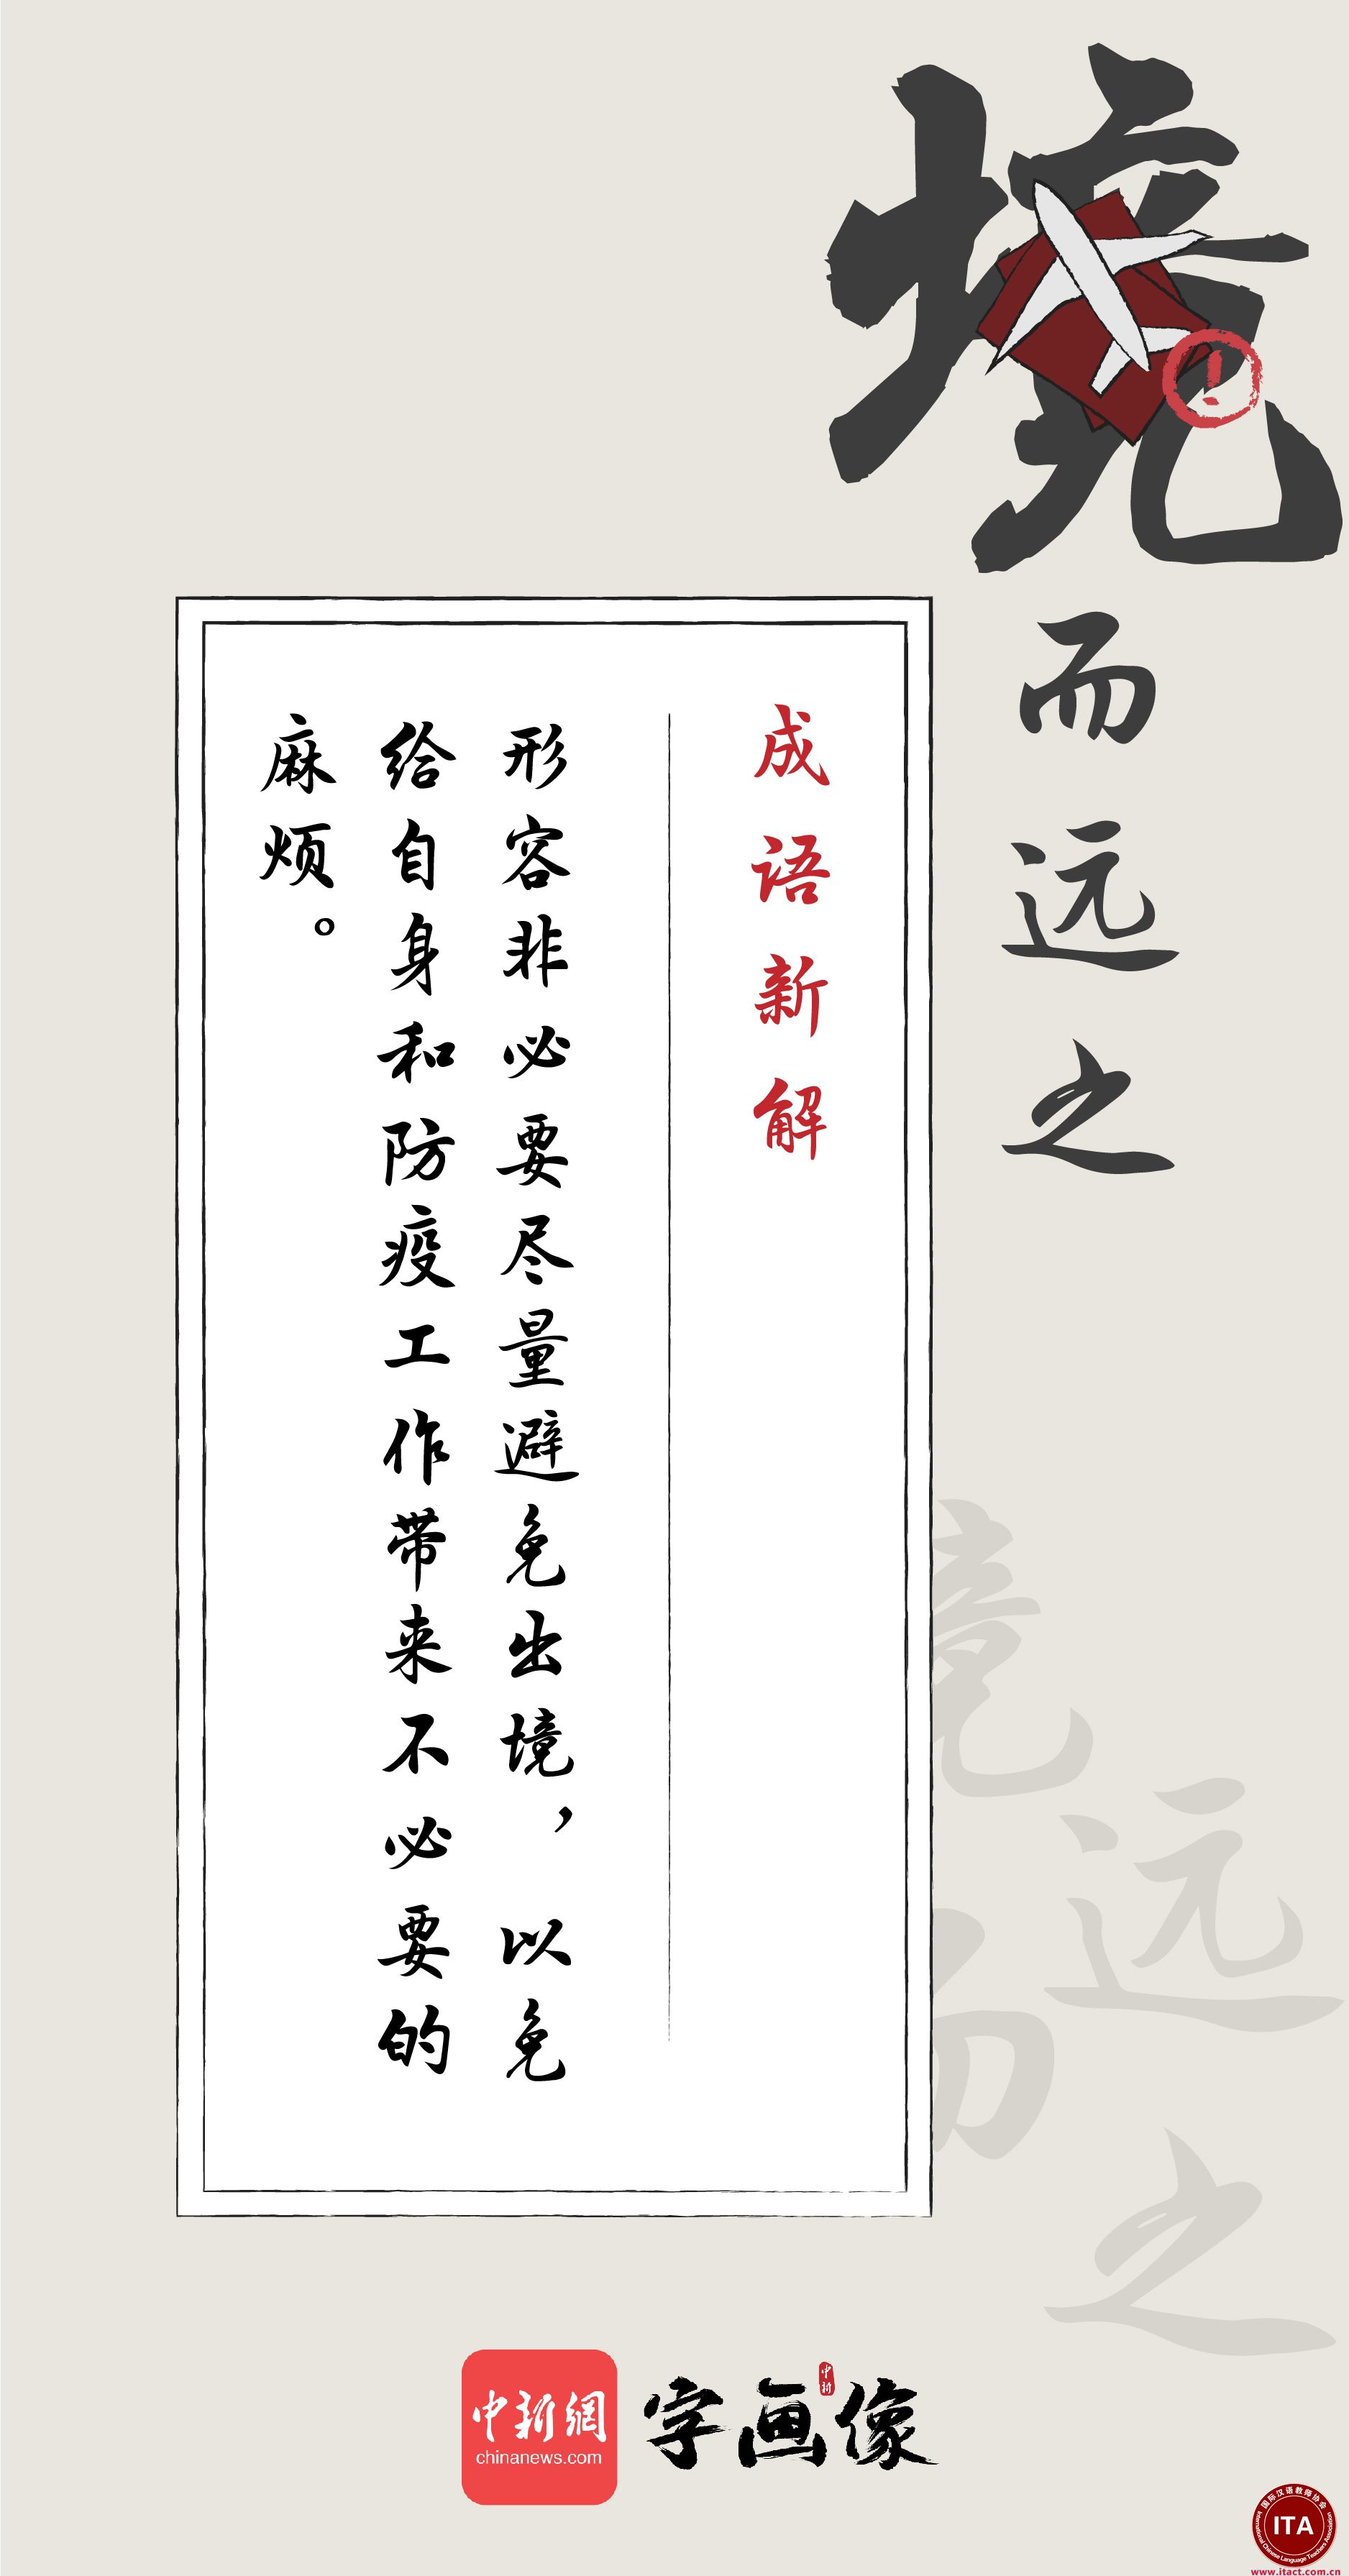 境而远之
成语新解
形容非必要尽量避免出境，以免
给自身和防疫工作带来不必要的
麻烦。
境
而
远
之
中新網
chinanews.com
字画像
中新
国际汉语教师协会
ITA
International Chinese Language Teachers Association
www.itact.com.cn